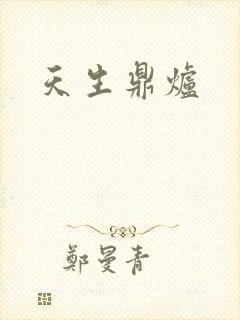 天生鼎爐
鄭曼青